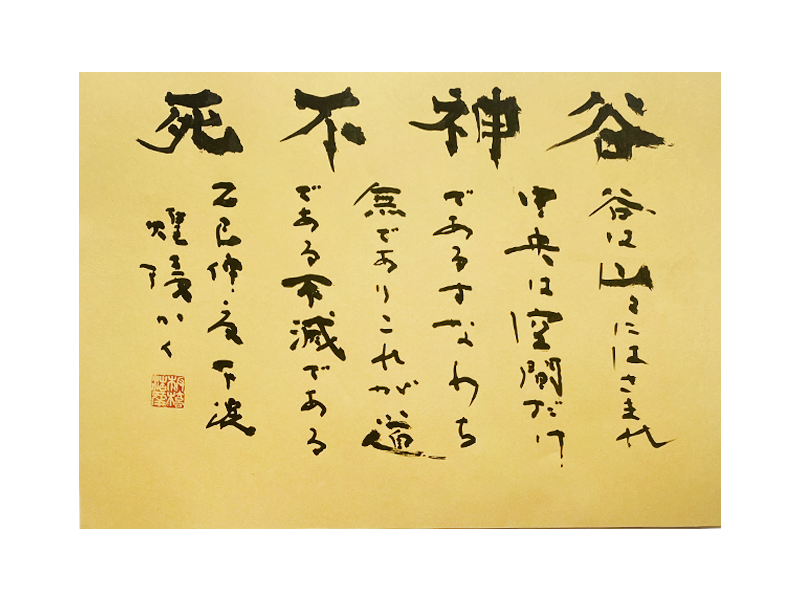 谷神不死
谷は山々にはさまれ
中央は空間だけ
であるすなわち
無でありこれが道
である不滅である
乙巳仲夏下浣
かく